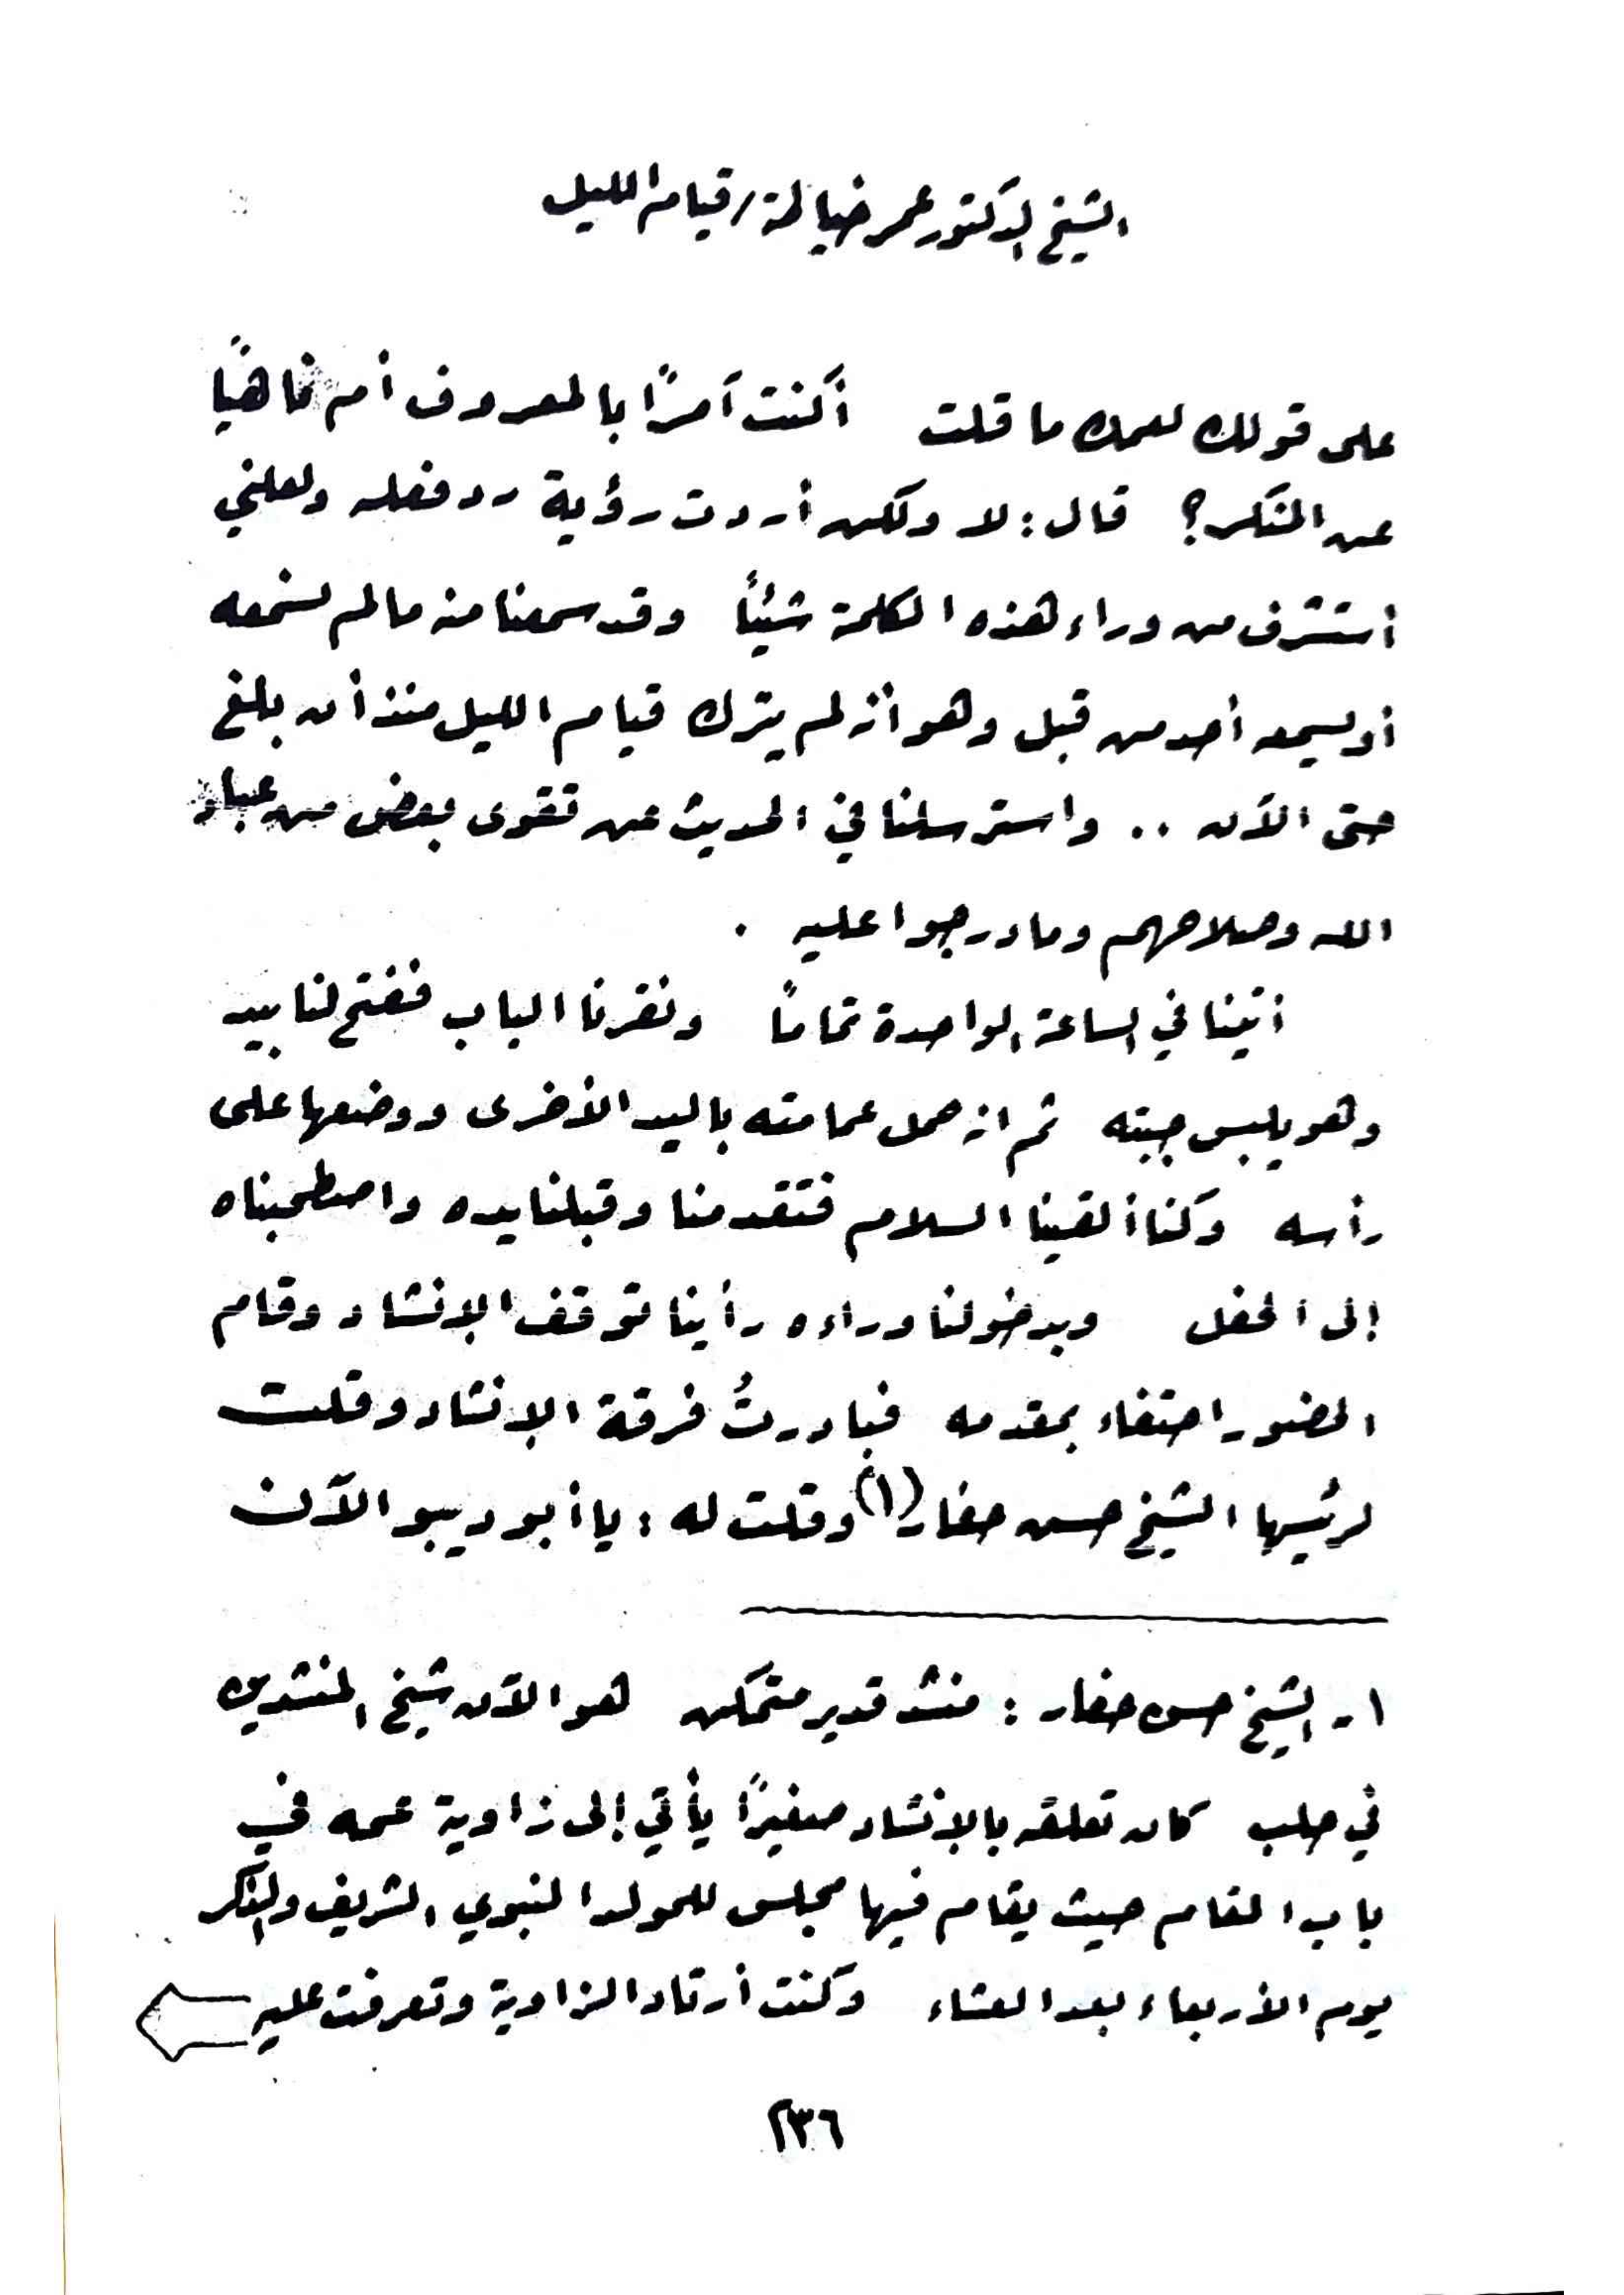 الشيخ الدكتور عمر خيالة / قيام الليل
على قولك لعمك ما قلت أكنت آمرًا بالمعروف أم ناهيًا
عن المنكر؟ قال: لا ولكن أردت رؤية رد فعله ولعلني
أستشرف من وراء هذه الكلمة شيئًا وقد سمعنا منه ما لم نسمعه
أو يسمعه أحد من قبل وهو أنه لم يترك قيام الليل منذ أن بلغ
حتى الآن .. واسترسلنا في الحديث عن تقوى بعض من عباد
الله وصلاحهم وما درجوا عليه .
أتينا في الساعة الواحدة تمامًا ونقرنا الباب ففتح لنا بيد
وهو يلبس جبته ثم انه حمل عمامته باليد الأخرى ووضعها على
رأسه وكنا ألقينا السلام فتقدمنا وقبلنا يده واصطحبناه
إلى الحفل وبدخولنا وراءه رأينا توقف الإنشاد وقام
الحضور احتفاء بمقدمه فبادرتُ فرقة الإنشاد وقلت
لرئيسها الشيخ حسن حفار (١) وقلت له : يا أبو ديبو الآن
١ - الشيخ حسن حفار : منشد قدير متمكن هو الآن شيخ المنشدين
في حلب كان تعلقه بالإنشاد صغيرًا يأتي إلى زاوية عمه في
باب المقام حيث يقام فيها مجلس للمولد النبوي الشريف والذكر
يوم الأربعاء بعد العشاء وكنت أرتاد الزاوية وتعرفت عليه
٢٣٦